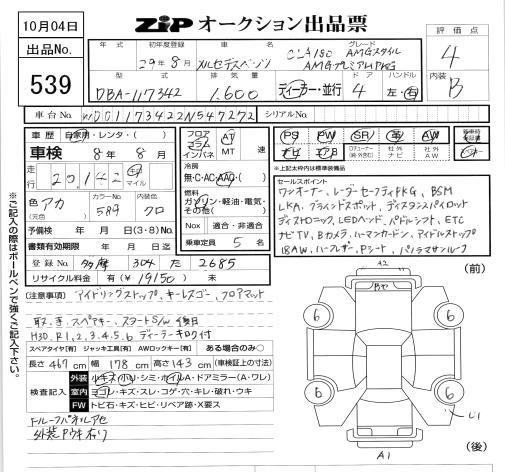 10月04日
ZIP オークション出品票
出品No.
539
年式 初年度登録 車名 グレード
29年8月 メルセデスベンツ CLA180 AMGスタイル
AMGプレミアムPKG
型式 排気量 ドア ハンドル
DBA-117342 1,600 ディーラー・並行 4 左・右
評価点
4
内装
B
車台No. WDD1173422N547272 シリアルNo.
車歴 自家用・レンタ・( )
車検 8年 8月
走行 20,142 キロ マイル
色 アカ (元色) カラーNo. 589 内装色 クロ
予備検 年 月 日(3・8)No.
書類有効期限 年 月 日迄
登録No. 多摩 304 た 2685
リサイクル料金 有(¥19150) 無
フロア コラム インパネ AT MT 速
冷房
無・C・AC・AAC・( )
燃料
ガソリン・軽油・電気・その他( )
Nox 適合・非適合
乗車定員 5 名
PS PW SR 革 AW
ナビ エアB 社外ナビ 社外AW
※上記太枠内は標準装備品
セールスポイント
ワンオーナー、レーダーセーフティPKG、BSM
LKA、ブラインドスポット、ディスタンスパイロット
ディストロニック、LEDヘッド、パドルシフト、ETC
ナビTV、Bカメラ、ハーマンカードン、アイドルストップ
18AW、ハーフレザー、Pシート、パノラマサンルーフ
(注意事項) アイドリングストップ、キーレスゴー、フロアマット
取、き、スペアキー、スタートS/W 後日
H30、R1、2、3、4、5、6 ディーラーキロク付
スペアタイヤ[有] ジャッキ工具[有] AWロックキー[有] ある場合のみ○
長さ 467cm 幅 178cm 高さ 143cm (車検証上の寸法)
検査記入
外装 小キズ・小凹・シミ・ホイルA・ドアミラー(A・ワレ)
室内 ヨゴレ・キズ・スレ・コゲ・穴・キレ・破れ・ウキ
FW トビ石・キズ・ヒビ・リペア跡・X要ス
外装アウキ有り
※ご記入の際はボールペンで強くご記入下さい。
A2
(前)
6
6
6
6
U1
A1
(後)